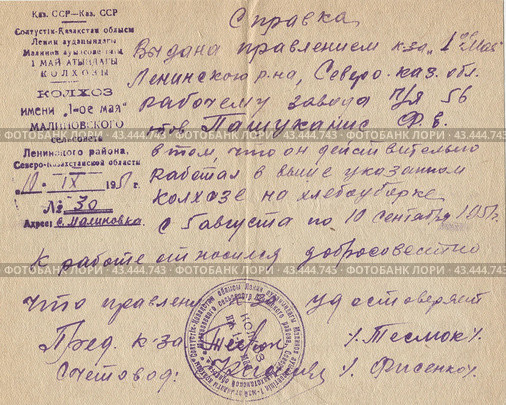 Каз. ССР—Каз. ССР
Солтустік-Қазақстан облысы
Ленин ауданындағы
1 МАЙ АТЫНДАҒЫ
КОЛХОЗЫ
КОЛХОЗ
имени „1-ое мая"
МАЛИНОВСКОГО
сельсовета
Ленинского района,
Северо-Казахстанской области
„10" IX 1951 г.
№ 30
Адрес: с. Малиновка.
Справка
Выдана правлением к-за „1ое Мая"
Ленинского р-на, Северо-каз. обл.
рабочему завода п/я 56
тов. Пашуканис Ф. Е.
в том что он действительно
работал в выше указанном
колхозе на хлебоуборке
с 5 августа по 10 сентября 1951г.
К работе относился добросовестно
что правление к-за удостоверяет
Пред. к-за /Тесмок/.
Счетовод: /Фисенко/.
КОЛХОЗ
ФОТОБАНК ЛОРИ - 43.444.743
ФОТОБАНК ЛОРИ - 43.444.743
ФОТОБАНК ЛОРИ - 43.444.743